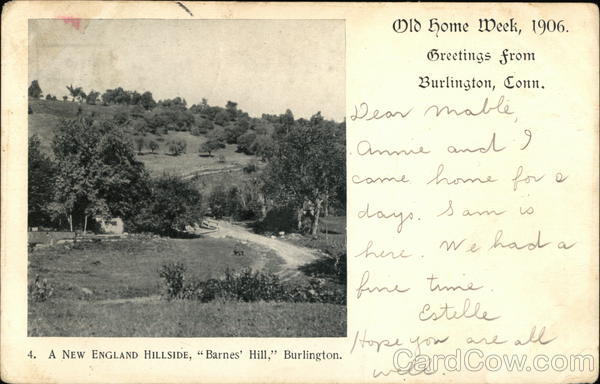 Old Home Week, 1906.
Greetings from
Burlington, Conn.
Dear Mable,
Annie and I
came home for a
days. Sam is
here. We had a
fine time.
Estelle
Hope you are all
well.
4. A New England Hillside, "Barnes' Hill," Burlington.
CardCow.com